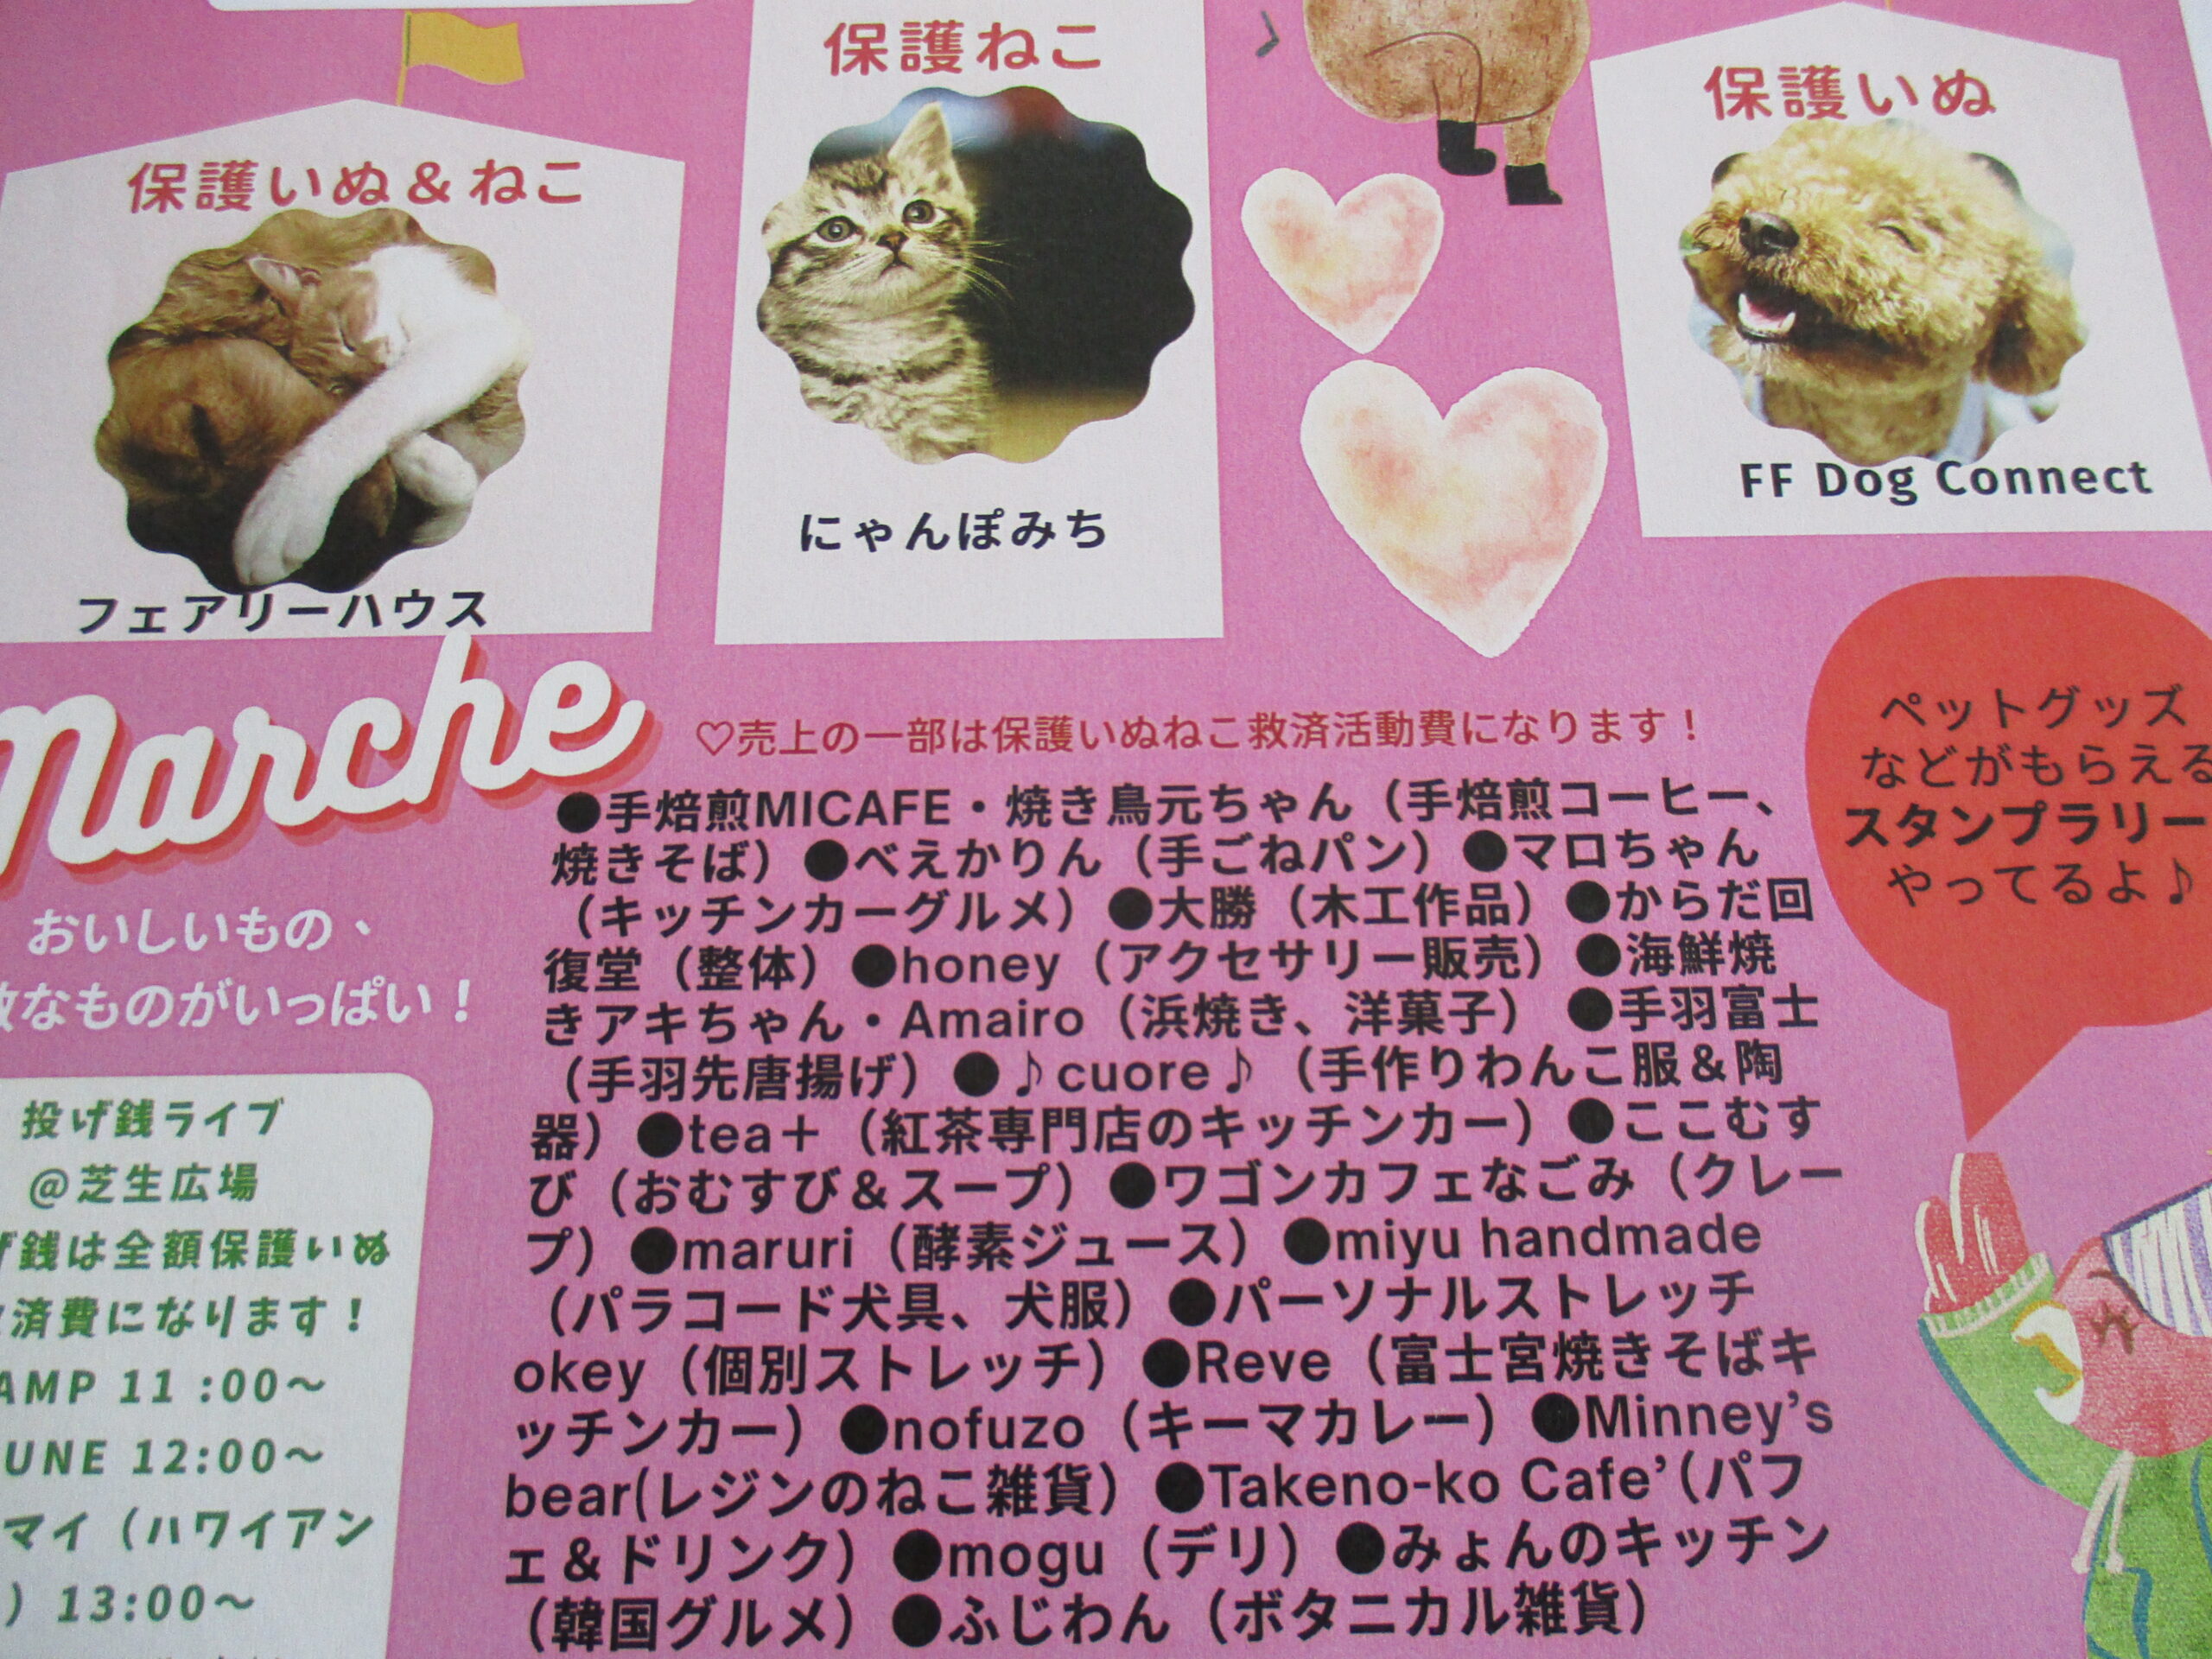 保護いぬ＆ねこ
フェアリーハウス
保護ねこ
にゃんぽみち
保護いぬ
FF Dog Connect
Marche
おいしいもの、
なものがいっぱい！
♡売上の一部は保護いぬねこ救済活動費になります！
●手焙煎MICAFE・焼き鳥元ちゃん（手焙煎コーヒー、
焼きそば）●べえかりん（手ごねパン）●マロちゃん
（キッチンカーグルメ）●大勝（木工作品）●からだ回
復堂（整体）●honey（アクセサリー販売）●海鮮焼
きアキちゃん・Amairo（浜焼き、洋菓子）●手羽富士
（手羽先唐揚げ）●♪cuore♪（手作りわんこ服＆陶
器）●tea＋（紅茶専門店のキッチンカー）●ここむす
び（おむすび＆スープ）●ワゴンカフェなごみ（クレー
プ）●maruri（酵素ジュース）●miyu handmade
（パラコード犬具、犬服）●パーソナルストレッチ
okey（個別ストレッチ）●Reve（富士宮焼きそばキ
ッチンカー）●nofuzo（キーマカレー）●Minney’s
bear(レジンのねこ雑貨）●Takeno-ko Cafe’（パフ
ェ＆ドリンク）●mogu（デリ）●みょんのキッチン
（韓国グルメ）●ふじわん（ボタニカル雑貨）
ペットグッズ
などがもらえる
スタンプラリー
やってるよ♪
投げ銭ライブ
@芝生広場
げ銭は全額保護いぬ
済費になります！
AMP 11 :00～
UNE 12:00～
マイ（ハワイアン
）13:00～